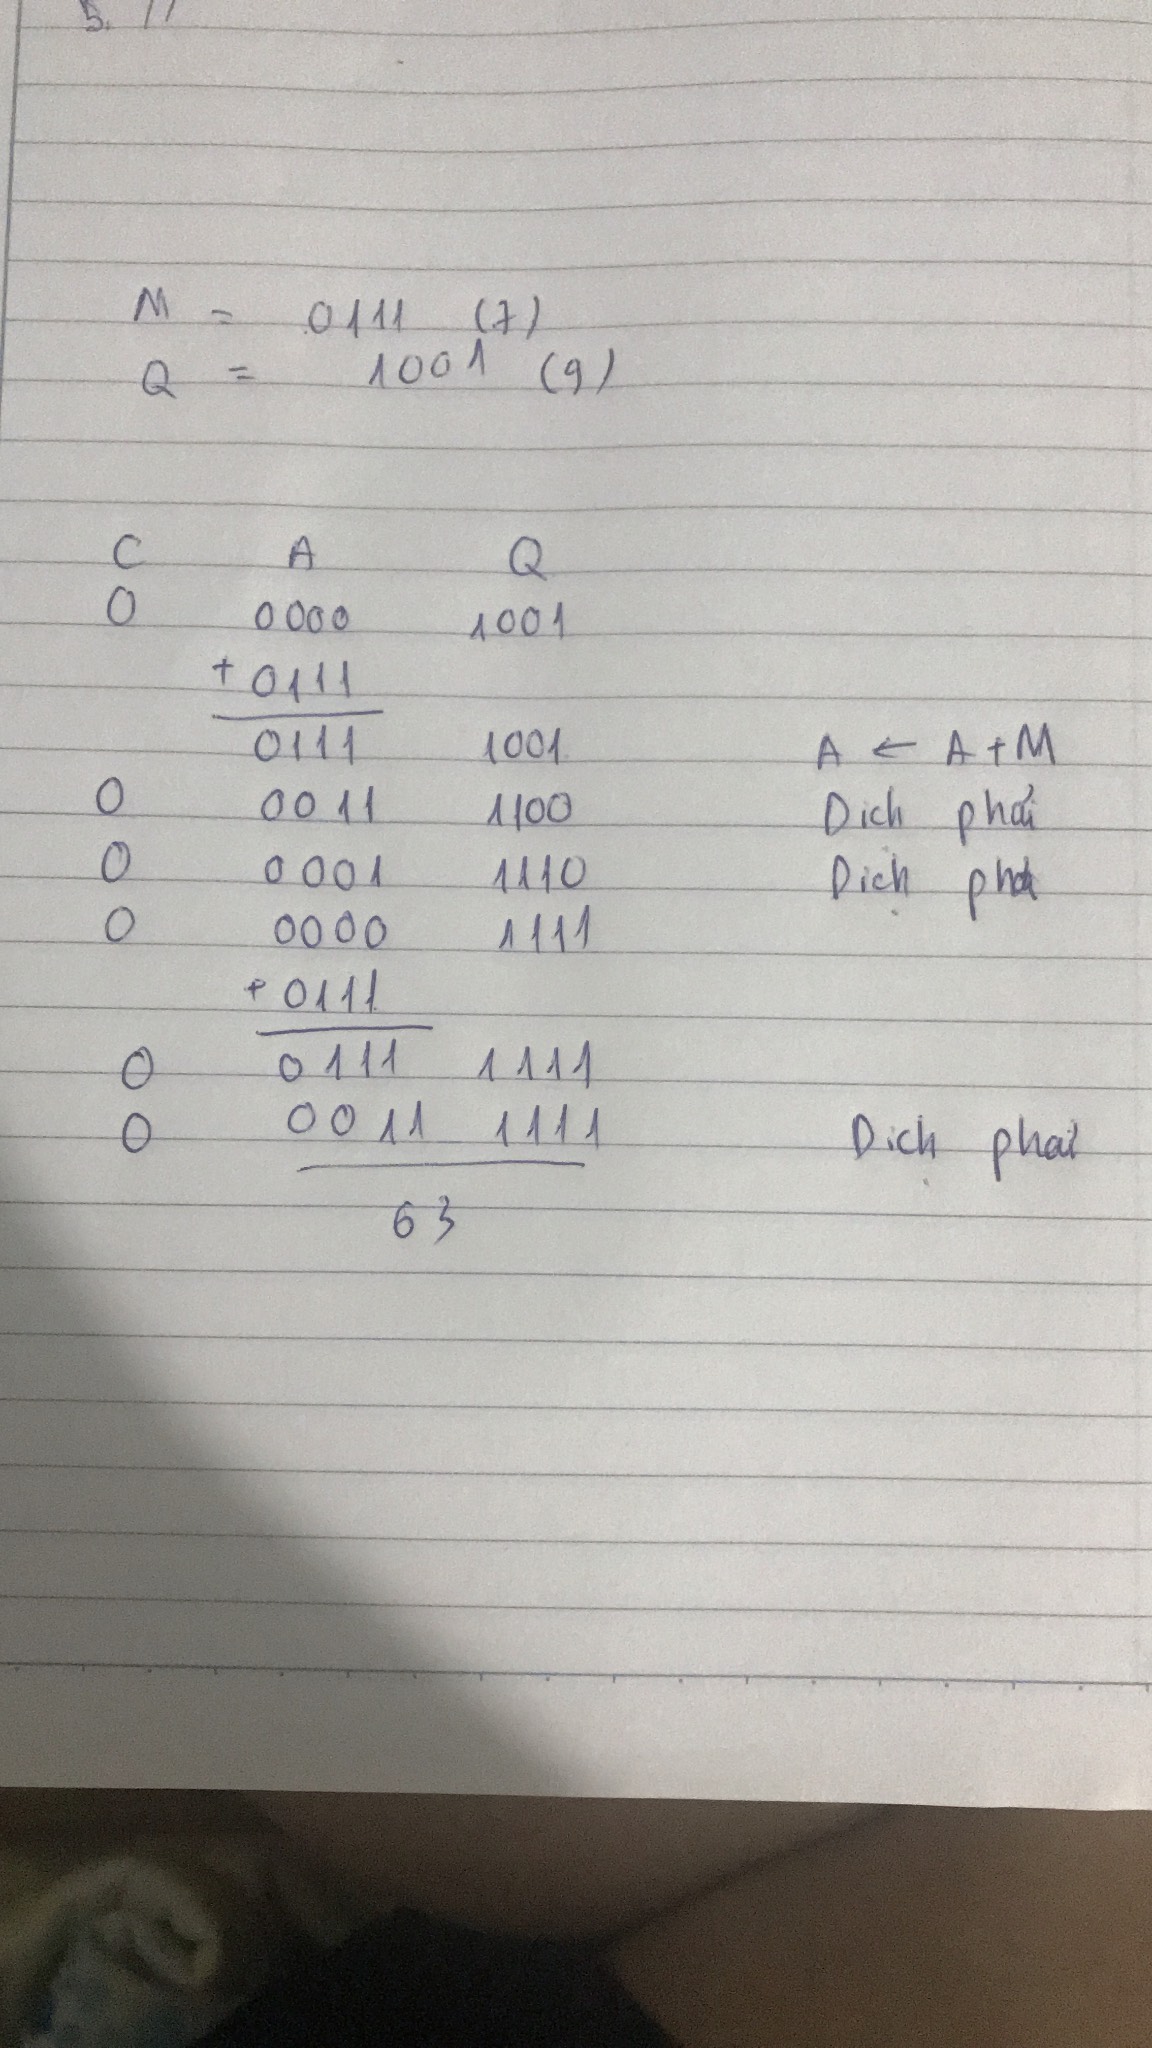 5. 11
M = 0111 (7)
Q = 1001 (9)
C A Q
0 0000 1001
+ 0111
0111 1001 A ← A + M
0 0011 1100 Dịch phải
0 0001 1110 Dịch
0 0000 1111
+ 0111
0 0111 1111
0 0011 1111 Dịch phải
63